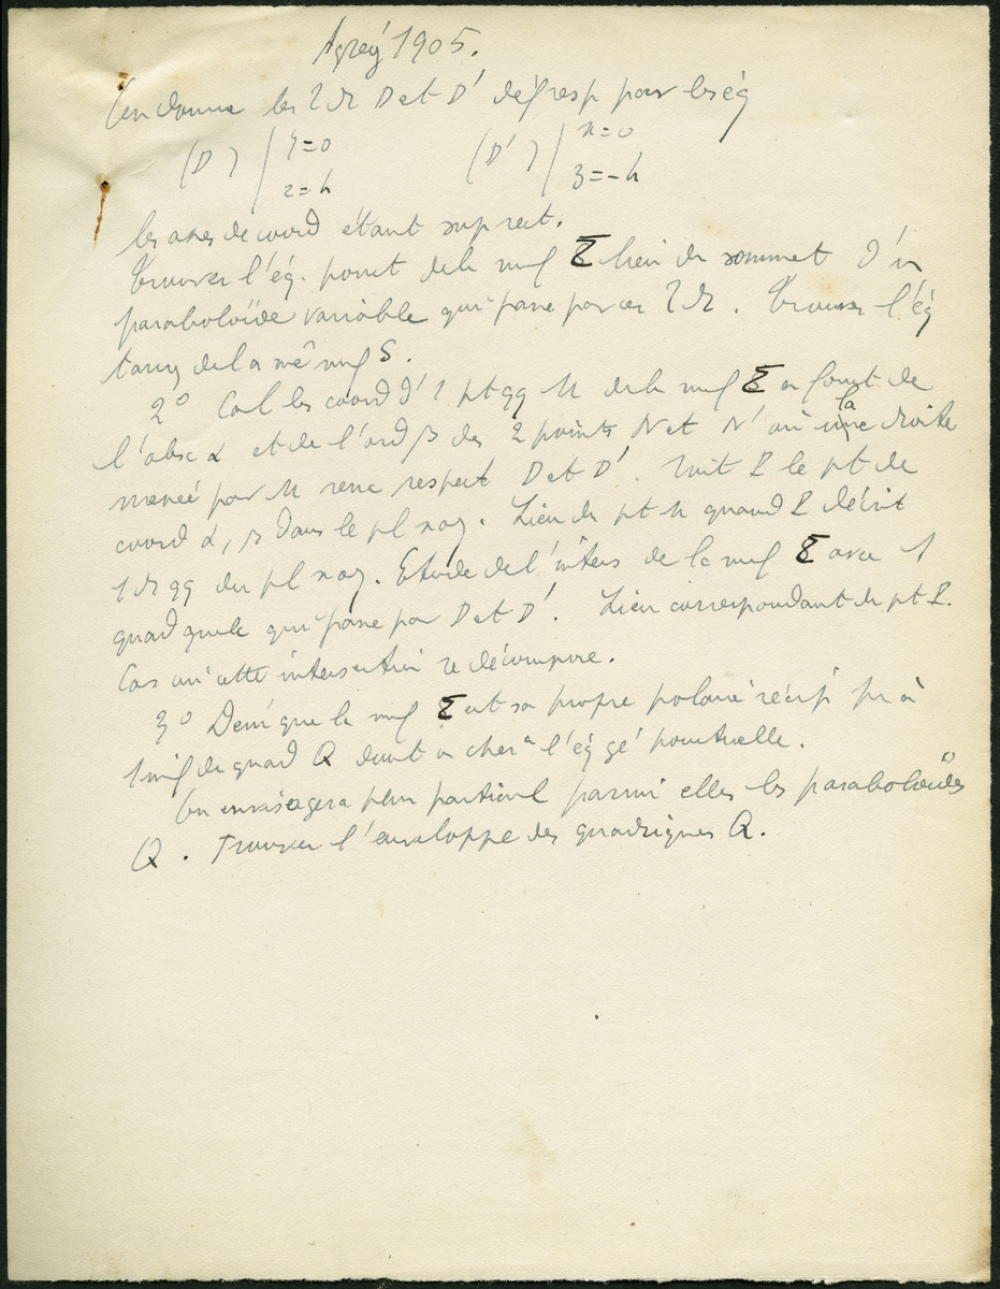 Agrég 1905.
On donne les 2 dr D et D' déf resp par les éq
(D) | y=0 (D') | x=0
z=h z=-h
les axes de coord étant sup rect.
Trouver l'éq. ponct de la surf Σ lieu du sommet d'un
paraboloïde variable qui passe par ces 2 dr. Trouver l'éq
tang de la mê surf S.
2° Cal les coord d'1 pt qq M de la surf Σ en fonct de
l'absc α et de l'ord β des 2 points N et N' où la droite
menée par M renc respect D et D'. Soit P le pt de
coord α, β dans le pl xoy. Lieu du pt M quand P décrit
1 dr qq du pl xoy. Etude de l'inters de la surf Σ avec 1
quad quelc qui passe par D et D'. Lieu correspondant du pt P.
Cas où cette intersection se décompose.
3° Dém que la surf Σ est sa propre polaire récip pr à
1 inf de quad Q dont on cher^a l'éq gé ponctuelle.
On envisagera plus particul parmi elles les paraboloïdes
Q. Trouver l'enveloppe des quadriques Q.